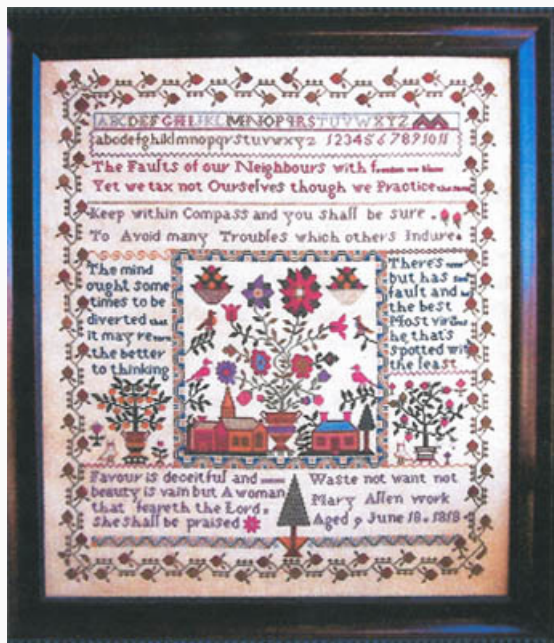 ABCDEFGHIJKLMNOPQRSTUVWXYZ
abcdefghiklmnopqrstuvwxyz 1234567891011
The Faults of our Neighbours with freedom we blame
Yet we tax not Ourselves though we Practice the same
Keep within Compass and you shall be sure
To Avoid many Troubles which others Indure
The mind
ought some
times to be
diverted that
it may return
the better
to thinking
There's none
but has some
fault and he's
the best
Most virtuous
he that's
spotted with
the least
Favour is deceitful and
beauty is vain but A woman
that feareth the Lord,
she shall be praised
Waste not want not
Mary Allen work
Aged 9 June 18. 1818